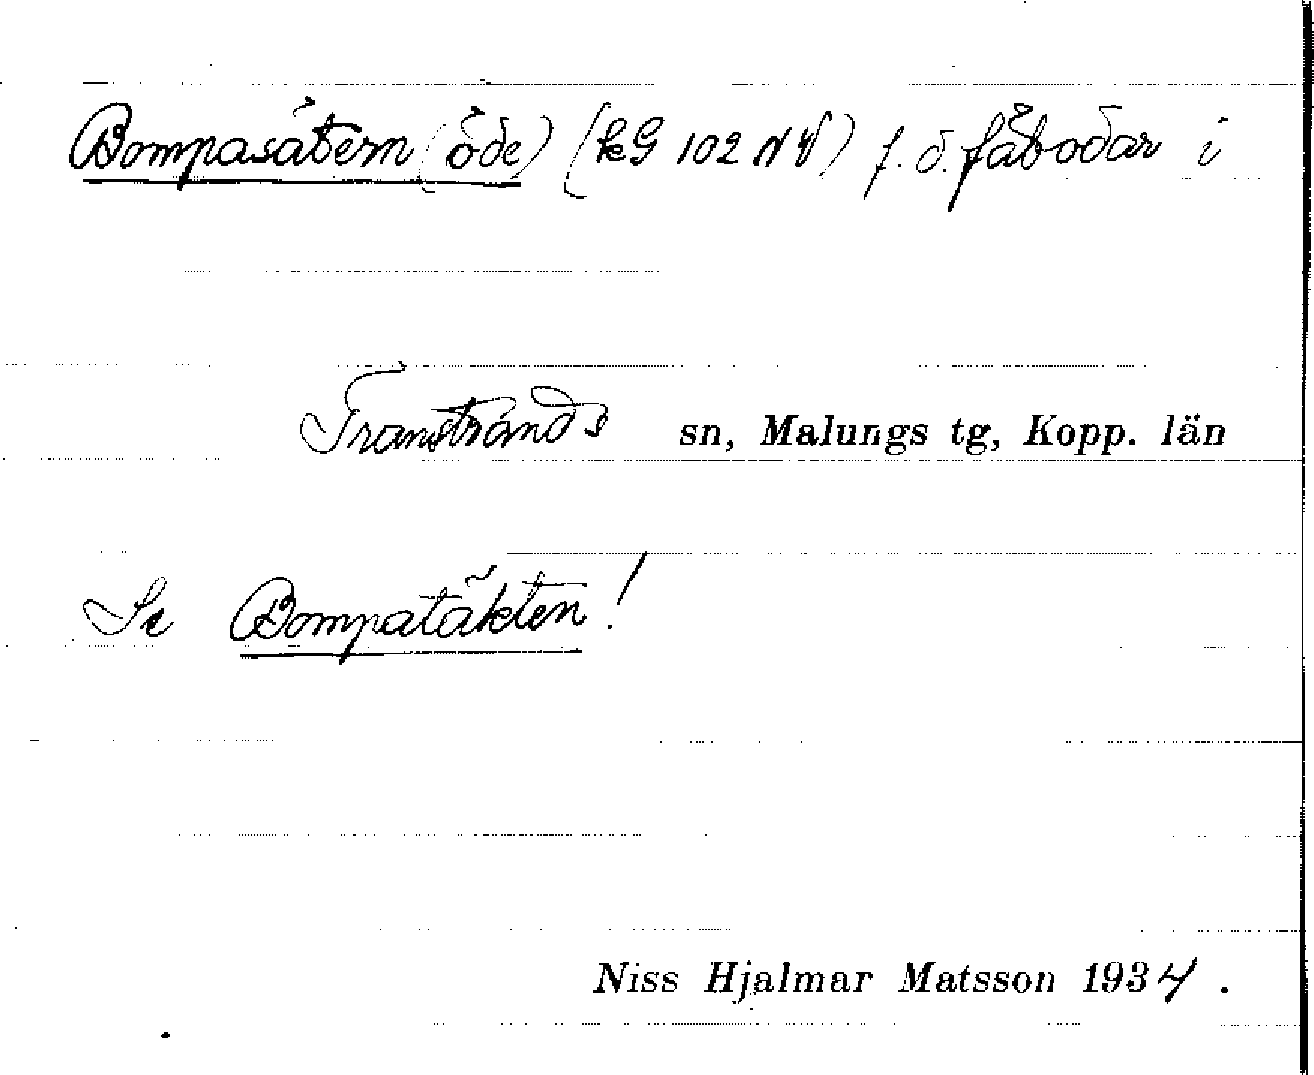 Bompasätern (öde) (kG 102 NV) f. d. fäbodar i
Transtrands sn, Malungs tg, Kopp. län
Se Bompatäkten!
Niss Hjalmar Matsson 1934.